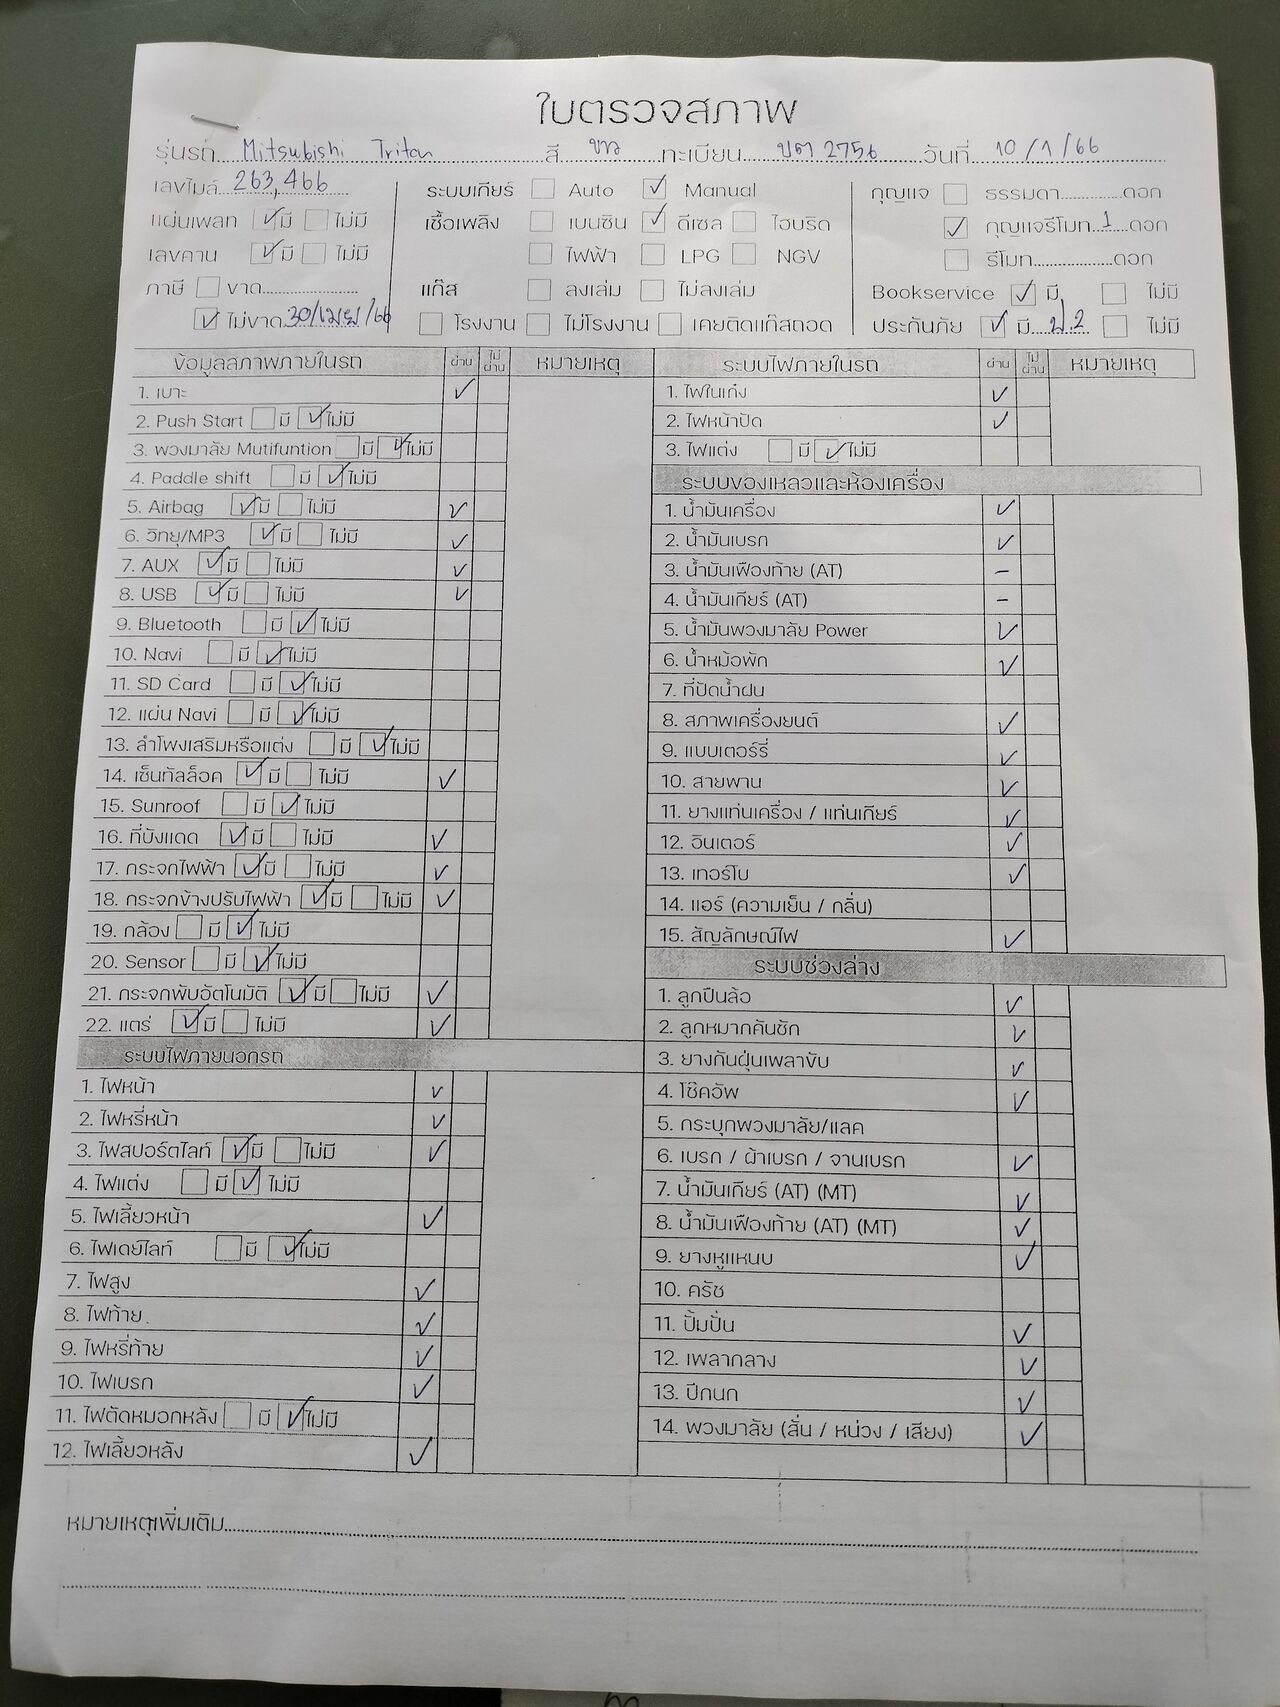 ใบตรวจสภาพ
รุ่นรถ Mitsubishi Tritan สี ขาว ทะเบียน บต 2756 วันที่ 10/1/66
เลขไมล์ 263,466
แผ่นเพลท ✓ มี ไม่มี
เลขคาน ✓ มี ไม่มี
ภาษี ขาด
✓ ไม่ขาด 30/เมย/66
ระบบเกียร์ Auto ✓ Manual
เชื้อเพลิง เบนซิน ✓ ดีเซล ไฮบริด
ไฟฟ้า LPG NGV
แก๊ส ลงเล่ม ไม่ลงเล่ม
โรงงาน ไม่โรงงาน เคยติดแก๊สถอด
กุญแจ ธรรมดา ดอก
✓ กุญแจรีโมท 1 ดอก
รีโมท ดอก
Bookservice ✓ มี ไม่มี
ประกันภัย ✓ มี ป.2 ไม่มี
ข้อมูลสภาพภายในรถ ผ่าน ไม่ผ่าน หมายเหตุ
1. เบาะ ✓
2. Push Start มี ✓ ไม่มี
3. พวงมาลัย Mutifuntion มี ✓ ไม่มี
4. Paddle shift มี ✓ ไม่มี
5. Airbag ✓ มี ไม่มี ✓
6. วิทยุ/MP3 ✓ มี ไม่มี ✓
7. AUX ✓ มี ไม่มี ✓
8. USB ✓ มี ไม่มี ✓
9. Bluetooth มี ✓ ไม่มี
10. Navi มี ✓ ไม่มี
11. SD Card มี ✓ ไม่มี
12. แผ่น Navi มี ✓ ไม่มี
13. ลำโพงเสริมหรือแต่ง มี ✓ ไม่มี
14. เซ็นทัลล็อค ✓ มี ไม่มี ✓
15. Sunroof มี ✓ ไม่มี
16. ที่บังแดด ✓ มี ไม่มี ✓
17. กระจกไฟฟ้า ✓ มี ไม่มี ✓
18. กระจกข้างปรับไฟฟ้า ✓ มี ไม่มี ✓
19. กล้อง มี ✓ ไม่มี
20. Sensor มี ✓ ไม่มี
21. กระจกพับอัตโนมัติ ✓ มี ไม่มี ✓
22. แตร่ ✓ มี ไม่มี ✓
ระบบไฟภายนอกรถ
1. ไฟหน้า ✓
2. ไฟหรี่หน้า ✓
3. ไฟสปอร์ตไลท์ ✓ มี ไม่มี ✓
4. ไฟแต่ง มี ✓ ไม่มี
5. ไฟเลี้ยวหน้า ✓
6. ไฟเดย์ไลท์ มี ✓ ไม่มี
7. ไฟสูง ✓
8. ไฟท้าย. ✓
9. ไฟหรี่ท้าย ✓
10. ไฟเบรก ✓
11. ไฟตัดหมอกหลัง มี ✓ ไม่มี
12. ไฟเลี้ยวหลัง ✓
ระบบไฟภายในรถ ผ่าน ไม่ผ่าน หมายเหตุ
1. ไฟในเก๋ง ✓
2. ไฟหน้าปัด ✓
3. ไฟแต่ง มี ✓ ไม่มี
ระบบของเหลวและห้องเครื่อง
1. น้ำมันเครื่อง ✓
2. น้ำมันเบรก ✓
3. น้ำมันเฟืองท้าย (AT) –
4. น้ำมันเกียร์ (AT) –
5. น้ำมันพวงมาลัย Power ✓
6. น้ำหม้อพัก ✓
7. ที่ปัดน้ำฝน
8. สภาพเครื่องยนต์ ✓
9. แบบเตอร์รี่ ✓
10. สายพาน ✓
11. ยางแท่นเครื่อง / แท่นเกียร์ ✓
12. อินเตอร์ ✓
13. เทอร์โบ ✓
14. แอร์ (ความเย็น / กลิ่น)
15. สัญลักษณ์ไฟ ✓
ระบบช่วงล่าง
1. ลูกปืนล้อ ✓
2. ลูกหมากคันชัก ✓
3. ยางกันฝุ่นเพลาขับ ✓
4. โช๊คอัพ ✓
5. กระบุกพวงมาลัย/แลค
6. เบรก / ผ้าเบรก / จานเบรก ✓
7. น้ำมันเกียร์ (AT) (MT) ✓
8. น้ำมันเฟืองท้าย (AT) (MT) ✓
9. ยางหูแหนบ ✓
10. ครัช
11. ปั้มปั่น ✓
12. เพลากลาง ✓
13. ปีกนก ✓
14. พวงมาลัย (สั่น / หน่วง / เสียง) ✓
หมายเหตุเพิ่มเติม